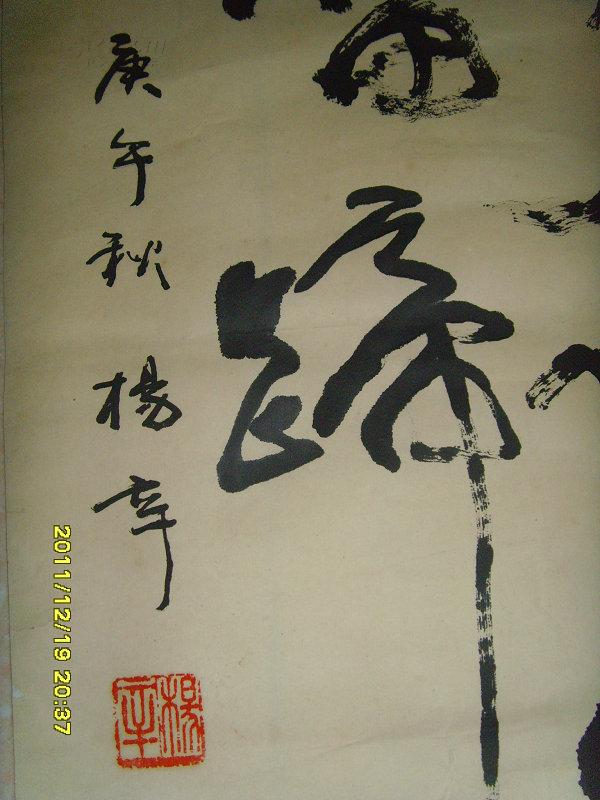 蹄
庚午秋 楊辛
楊辛
2011/12/19 20:37